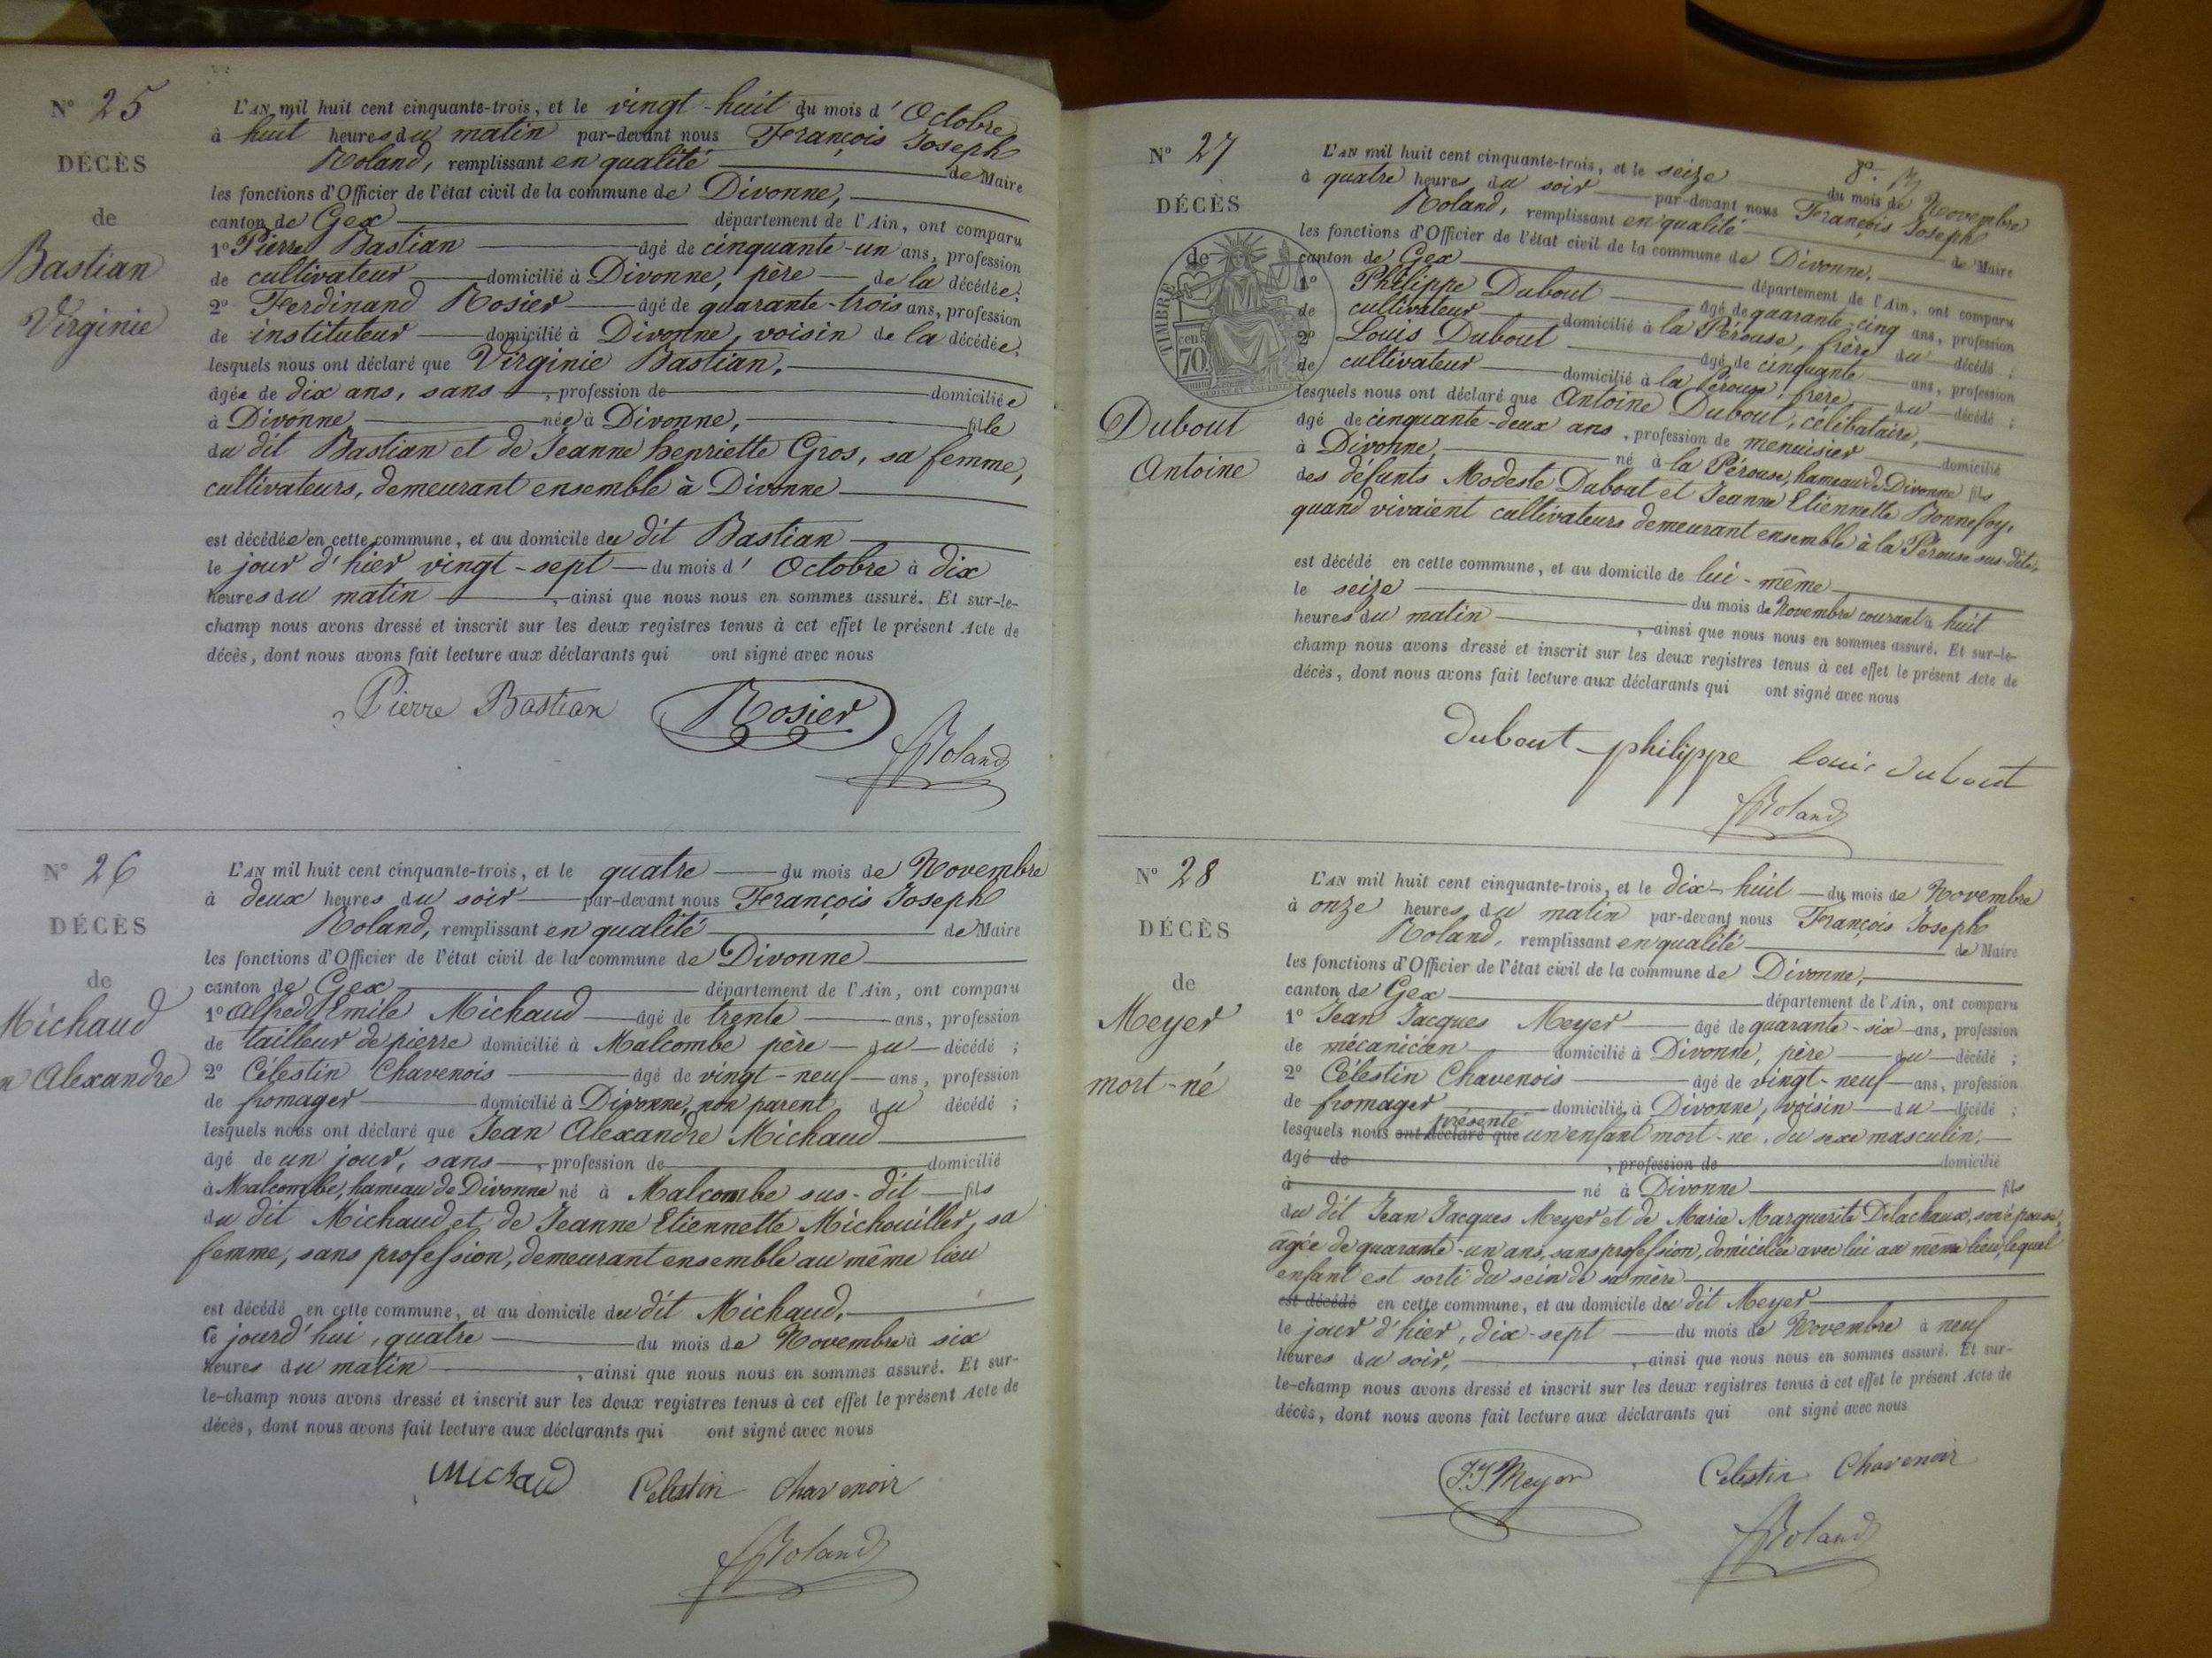 N° 25
DÉCÈS
de
Bastian
Virginie
L'AN mil huit cent cinquante-trois, et le vingt-huit du mois d'Octobre
à huit heures du matin par-devant nous François Joseph
Roland, remplissant en qualité de Maire
les fonctions d'Officier de l'état civil de la commune de Divonne,
canton de Gex département de l'Ain, ont comparu
1° Pierre Bastian âgé de cinquante-un ans, profession
de cultivateur domicilié à Divonne, père de la décédée;
2° Ferdinand Rosier âgé de quarante-trois ans, profession
de instituteur domicilié à Divonne, voisin de la décédée;
lesquels nous ont déclaré que Virginie Bastian,
âgée de dix ans, sans , profession de domiciliée
à Divonne née à Divonne, fille
du dit Bastian et de Jeanne henriette Gros, sa femme,
cultivateurs, demeurant ensemble à Divonne
est décédée en cette commune, et au domicile du dit Bastian
le jour d'hier vingt-sept du mois d'Octobre à dix
heures du matin , ainsi que nous nous en sommes assuré. Et sur-le-
champ nous avons dressé et inscrit sur les deux registres tenus à cet effet le présent Acte de
décès, dont nous avons fait lecture aux déclarants qui ont signé avec nous
Pierre Bastian Rosier
Roland
N° 26
DÉCÈS
de
Michaud
n Alexandre
L'AN mil huit cent cinquante-trois, et le quatre du mois de Novembre
à deux heures du soir par-devant nous François Joseph
Roland, remplissant en qualité de Maire
les fonctions d'Officier de l'état civil de la commune de Divonne
canton de Gex département de l'Ain, ont comparu
1° Alfred Emile Michaud âgé de trente ans, profession
de tailleur de pierre domicilié à Malcombe père du décédé;
2° Célestin Chavenois âgé de vingt-neuf ans, profession
de fromager domicilié à Divonne, non parent du décédé;
lesquels nous ont déclaré que Jean Alexandre Michaud
âgé de un jour, sans , profession de domicilié
à Malcombe, hameau de Divonne né à Malcombe sus-dit fils
du dit Michaud et de Jeanne Etiennette Michouiller, sa
femme, sans profession, demeurant ensemble au même lieu
est décédé en cette commune, et au domicile du dit Michaud,
Ce jourd'hui, quatre du mois de Novembre à six
heures du matin , ainsi que nous nous en sommes assuré. Et sur-
le-champ nous avons dressé et inscrit sur les deux registres tenus à cet effet le présent Acte de
décès, dont nous avons fait lecture aux déclarants qui ont signé avec nous
Michaud Celestin Chavenoir
Roland
N° 27
DÉCÈS
de
TIMBRE
70 cent
Dubout
Antoine
L'AN mil huit cent cinquante-trois, et le seize du mois de Novembre
à quatre heures du soir par-devant nous François Joseph
Roland, remplissant en qualité de Maire
les fonctions d'Officier de l'état civil de la commune de Divonne,
canton de Gex département de l'Ain, ont comparu
1° Philippe Dubout âgé de quarante-cinq ans, profession
de cultivateur domicilié à la Pérouse, frère du décédé;
2° Louis Dubout âgé de cinquante ans, profession
de cultivateur domicilié à la Pérouse, frère du décédé;
lesquels nous ont déclaré que Antoine Dubout, célibataire,
âgé de cinquante-deux ans, profession de menuisier domicilié
à Divonne, né à la Pérouse, hameau de Divonne fils
des défunts Modeste Dubout et Jeanne Etiennette Bonnefoy,
quand vivaient cultivateurs demeurant ensemble à la Pérouse sus-dite,
est décédé en cette commune, et au domicile de lui-même
le seize du mois de Novembre courant à huit
heures du matin , ainsi que nous nous en sommes assuré. Et sur-le-
champ nous avons dressé et inscrit sur les deux registres tenus à cet effet le présent Acte de
décès, dont nous avons fait lecture aux déclarants qui ont signé avec nous
Dubout philippe Louis dubout
Roland
N° 28
DÉCÈS
de
Meyer
mort-né
L'AN mil huit cent cinquante-trois, et le dix-huit du mois de Novembre
à onze heures du matin par-devant nous François Joseph
Roland, remplissant en qualité de Maire
les fonctions d'Officier de l'état civil de la commune de Divonne,
canton de Gex département de l'Ain, ont comparu
1° Jean Jacques Meyer âgé de quarante-six ans, profession
de mécanicien domicilié à Divonne, père du décédé;
2° Célestin Chavenois âgé de vingt-neuf ans, profession
de fromager domicilié à Divonne, voisin du décédé;
présenté
lesquels nous ont déclaré que un enfant mort-né, du sexe masculin,
âgé de , profession de domicilié
à né à Divonne fils
du dit Jean Jacques Meyer et de Marie Marguerite Delachaux, son épouse,
agée de quarante-un ans, sans profession, domiciliée avec lui au même lieu, lequel
enfant est sorti du sein de sa mère
est décédé en cette commune, et au domicile du dit Meyer
le jour d'hier, dix-sept du mois de Novembre à neuf
heures du soir, , ainsi que nous nous en sommes assuré. Et sur-
le-champ nous avons dressé et inscrit sur les deux registres tenus à cet effet le présent Acte de
décès, dont nous avons fait lecture aux déclarants qui ont signé avec nous
J. J. Meyer Celestin Chavenoir
Roland